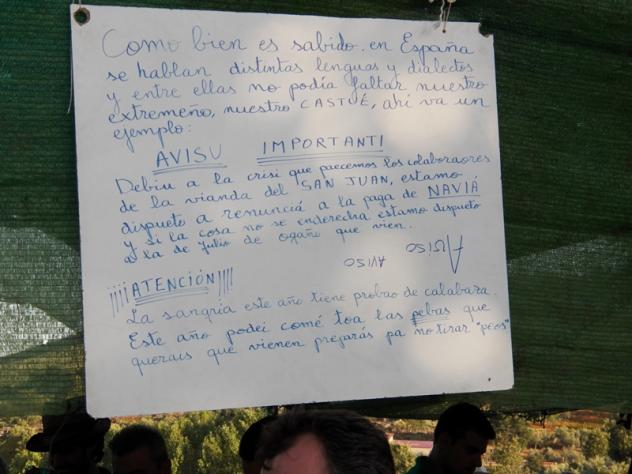 Como bien es sabido. en España
se hablan distintas lenguas y dialectos
y entre ellas no podía faltar nuestro
extremeño, nuestro CASTÚE, ahí va un
ejemplo:
AVISU IMPORTANTI
Debiu a la crisi que paecemos los colaboraores
de la vianda del SAN JUAN, estamo
dispueto a renunciá a la paga de NAVIÁ
y si la cosa no se enderecha estamo dispueto
a la de Julio de ogaño que vien.
AVISO AVISO
¡¡¡¡ATENCIÓN!!!!
La sangría este año tiene probao de calabaza.
Este año podei comé toa las pebas que
querais que vienen prejarás pa no tirar "peos"